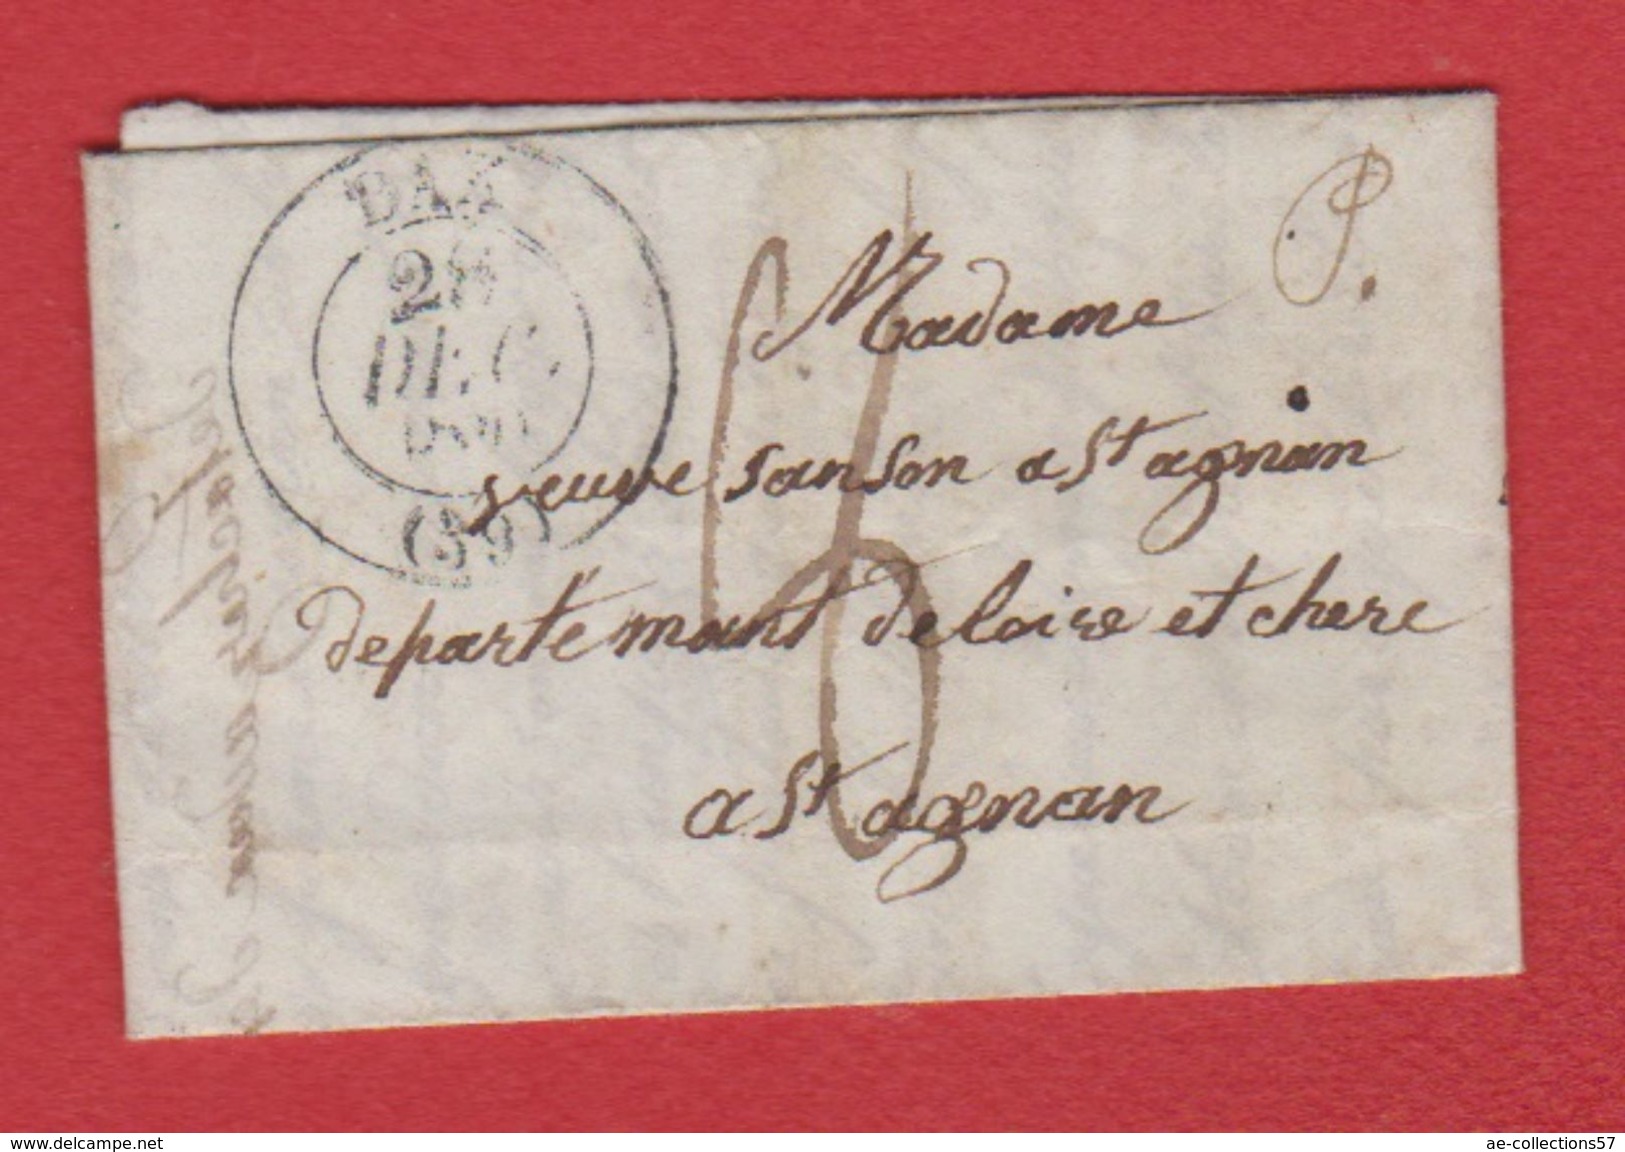 DAX
28
DEC.
(39)
P.
Madame
veuve sanson a St agnian
departement de loire et chere
a St agnan
6
www.delcampe.net
ae-collections57